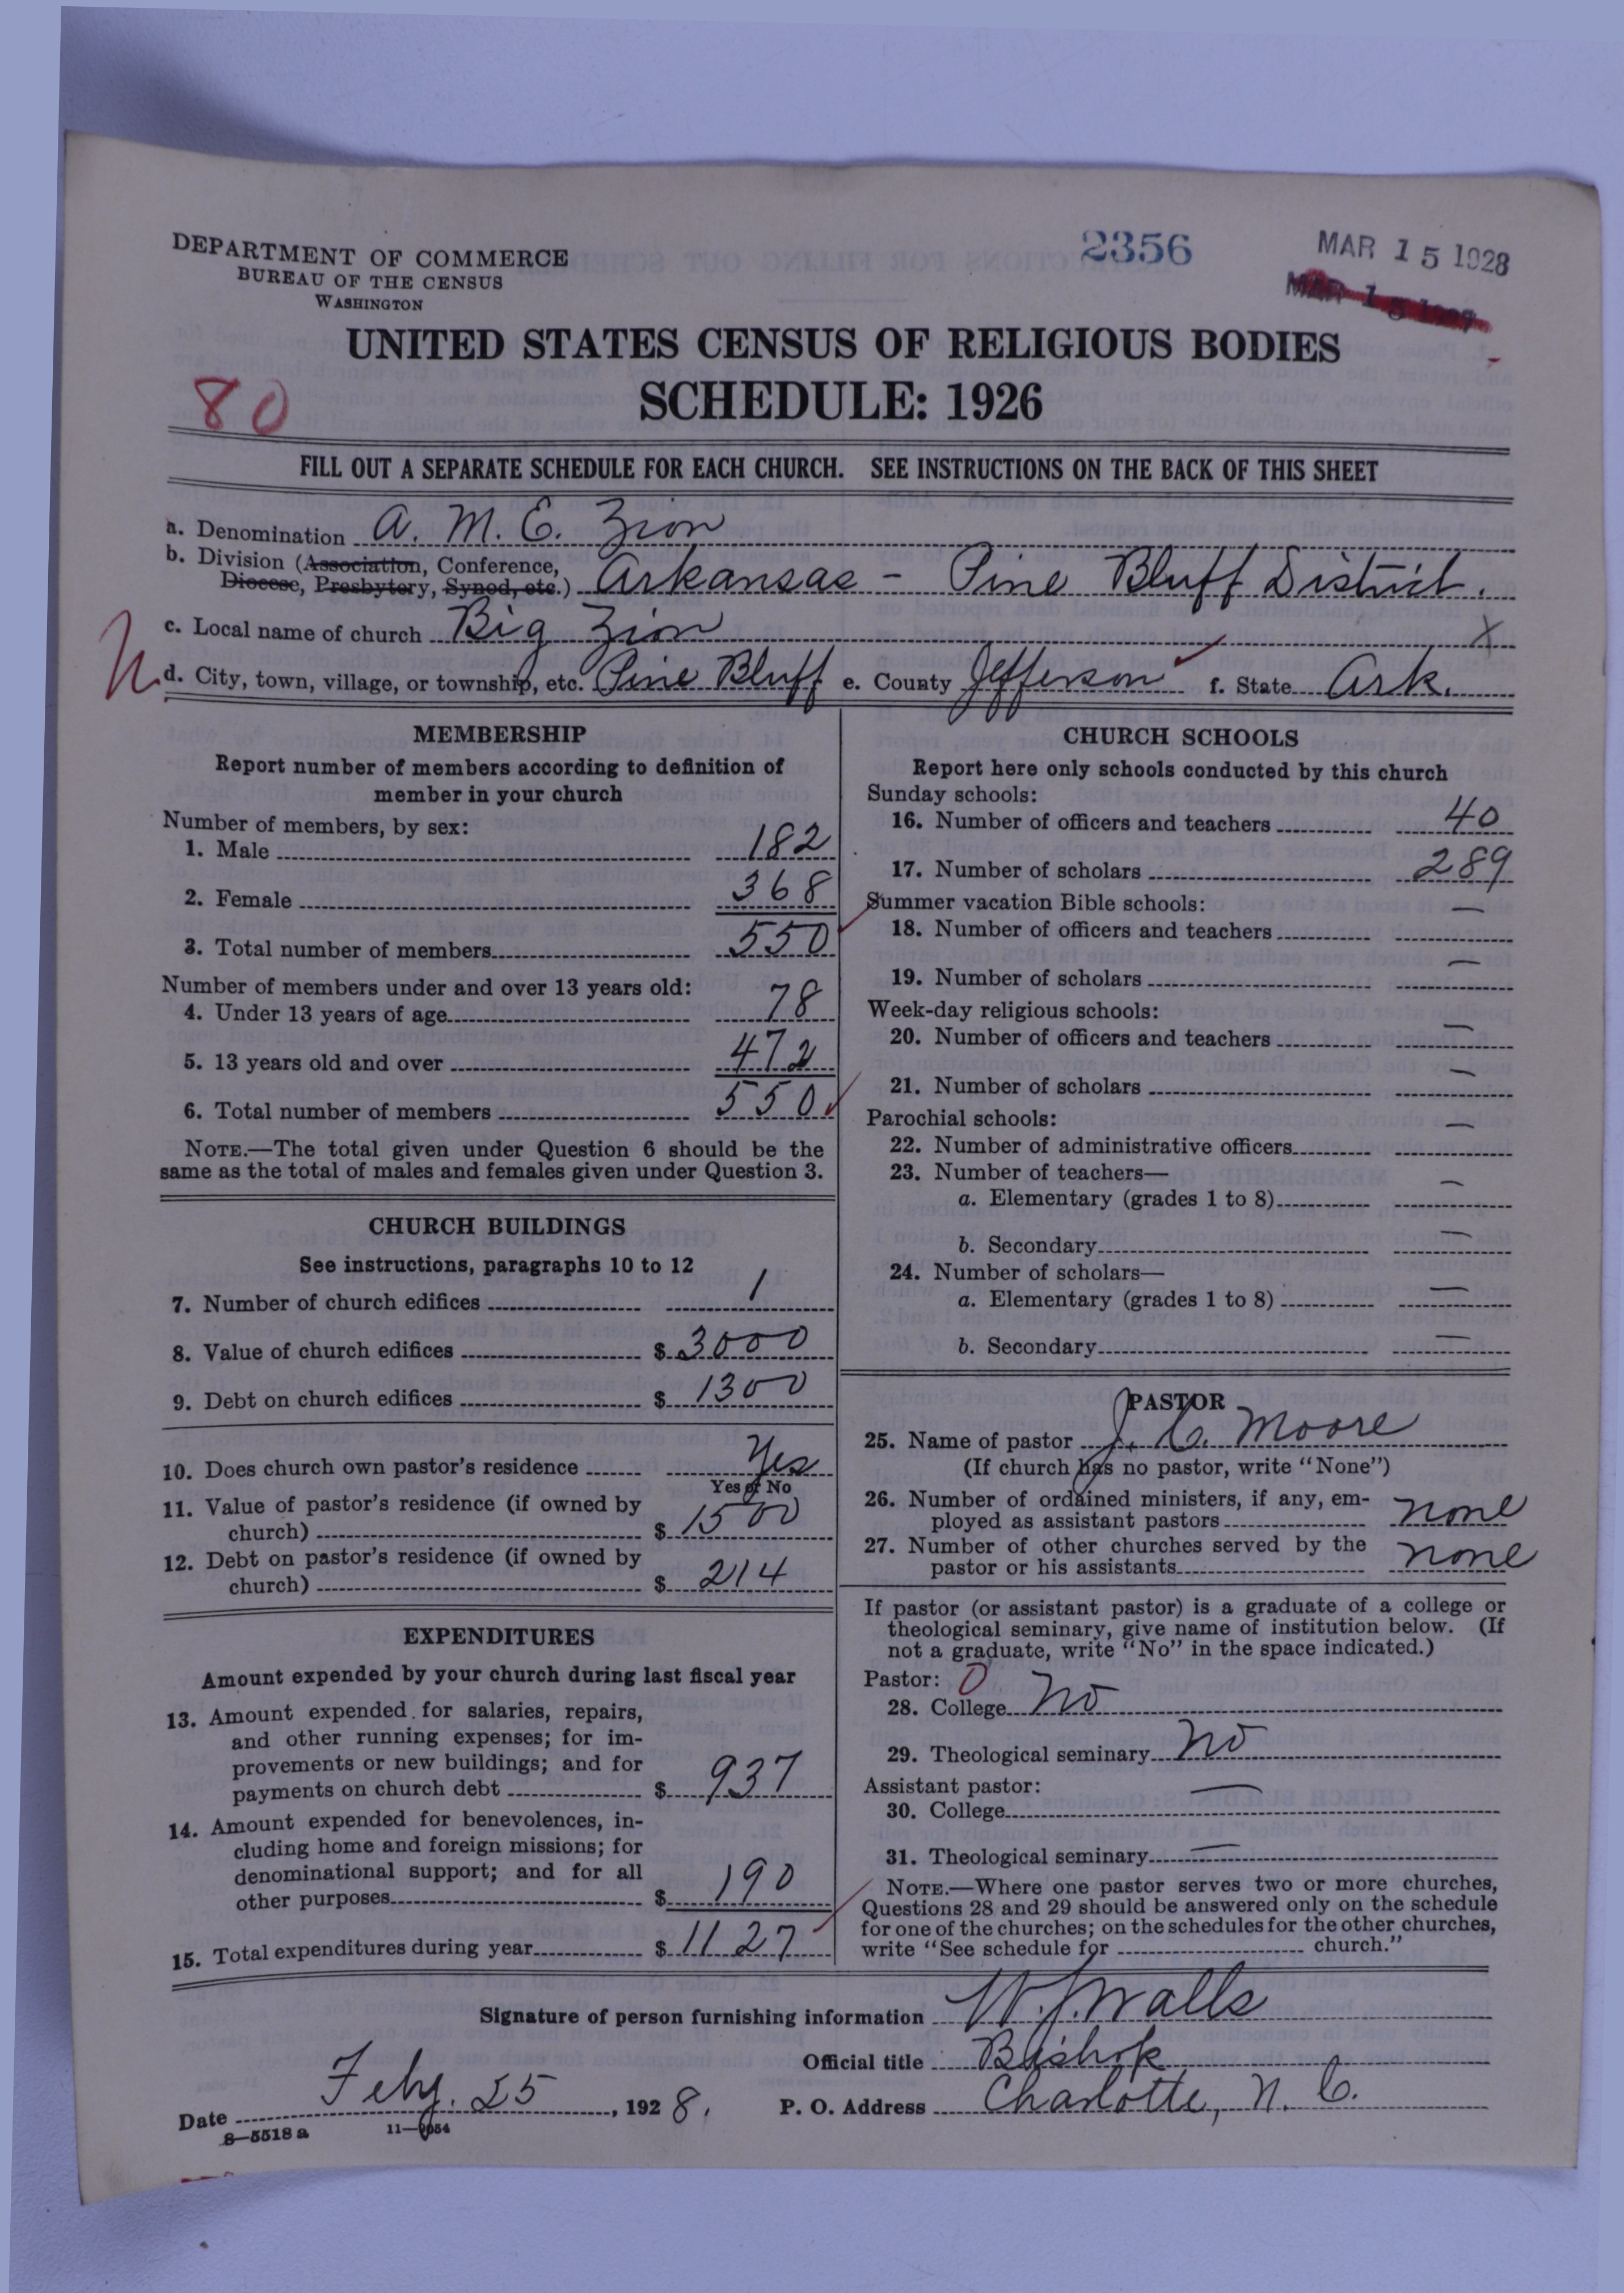 DEPARTMENT OF COMMERCE
BUREAU OF THE CENSUS
WASHINGTON
2356
MAR 15 1928
MAR 15 1927
UNITED STATES CENSUS OF RELIGIOUS BODIES
SCHEDULE: 1926
80
FILL OUT A SEPARATE SCHEDULE FOR EACH CHURCH. SEE INSTRUCTIONS ON THE BACK OF THIS SHEET
a. Denomination A. M. E. Zion
b. Division (Association, Conference,
Diocese, Presbytery, Synod, etc.) Arkansas - Pine Bluff District.
c. Local name of church Big Zion x
d. City, town, village, or township, etc. Pine Bluff e. County Jefferson f. State Ark.
MEMBERSHIP
Report number of members according to definition of
member in your church
Number of members, by sex:
1. Male 182
2. Female 368
3. Total number of members 550
Number of members under and over 13 years old:
4. Under 13 years of age 78
5. 13 years old and over 472
6. Total number of members 550
NOTE.—The total given under Question 6 should be the
same as the total of males and females given under Question 3.
CHURCH BUILDINGS
See instructions, paragraphs 10 to 12
7. Number of church edifices 1
8. Value of church edifices $ 3000
9. Debt on church edifices $ 1300
10. Does church own pastor's residence Yes
Yes or No
11. Value of pastor's residence (if owned by
church) $ 1500
12. Debt on pastor's residence (if owned by
church) $ 214
EXPENDITURES
Amount expended by your church during last fiscal year
13. Amount expended for salaries, repairs,
and other running expenses; for im-
provements or new buildings; and for
payments on church debt $ 937
14. Amount expended for benevolences, in-
cluding home and foreign missions; for
denominational support; and for all
other purposes $ 190
15. Total expenditures during year $ 1127
CHURCH SCHOOLS
Report here only schools conducted by this church
Sunday schools:
16. Number of officers and teachers 40
17. Number of scholars 289
Summer vacation Bible schools:
18. Number of officers and teachers —
19. Number of scholars —
Week-day religious schools:
20. Number of officers and teachers —
21. Number of scholars —
Parochial schools:
22. Number of administrative officers —
23. Number of teachers—
a. Elementary (grades 1 to 8) —
b. Secondary —
24. Number of scholars—
a. Elementary (grades 1 to 8) —
b. Secondary —
PASTOR
25. Name of pastor J. C. Moore
(If church has no pastor, write "None")
26. Number of ordained ministers, if any, em-
ployed as assistant pastors none
27. Number of other churches served by the
pastor or his assistants none
If pastor (or assistant pastor) is a graduate of a college or
theological seminary, give name of institution below. (If
not a graduate, write "No" in the space indicated.)
Pastor: 0
28. College No
29. Theological seminary No
Assistant pastor:
30. College —
31. Theological seminary —
NOTE.—Where one pastor serves two or more churches,
Questions 28 and 29 should be answered only on the schedule
for one of the churches; on the schedules for the other churches,
write "See schedule for church."
Signature of person furnishing information W. J. Walls
Official title Bishop
Date Feby. 25, 1928. P. O. Address Charlotte, N. C.
8—5518 a 11—9054